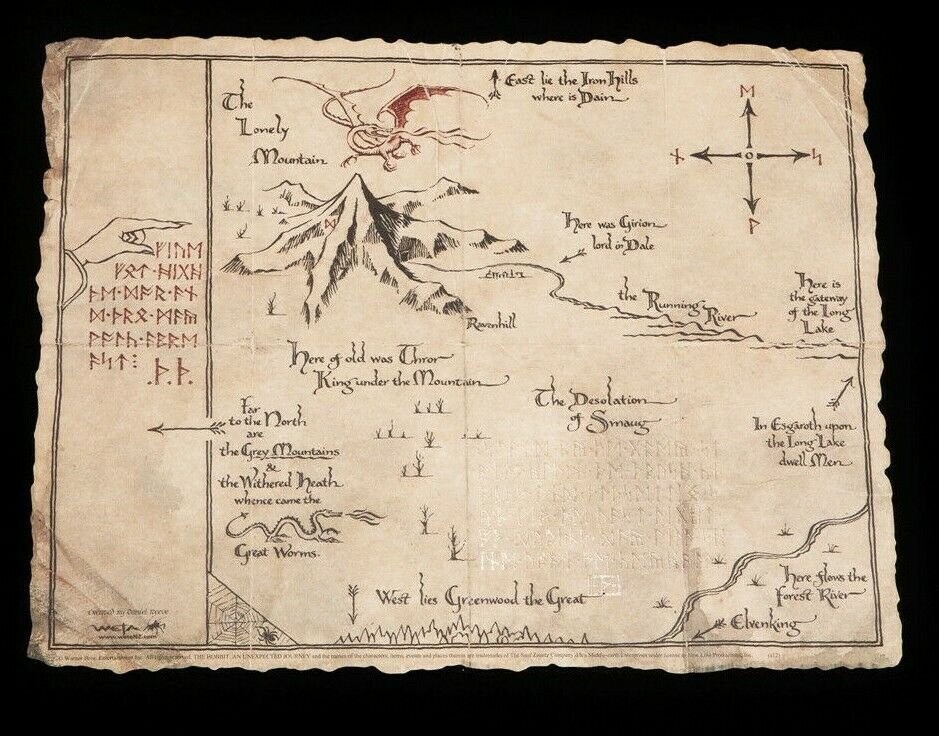 East lie the Iron Hills
where is Dain
The
Lonely
Mountain
ᛖ
ᚾ
ᛋ
ᚹ
ᛞ
Here was Girion
lord in Dale
Here is
the gateway
of the Long
Lake
the Running River
Ravenhill
ᚠᛁᚢᛖ
ᚻᛁᚷᚻ
ᚦᛖ·ᛞᚩᚱ·ᚪᚾ
ᛞ·ᚦᚱ·ᛗᚪᚣ
ᚹᚪᛚᚳ·ᚪᛒᚱᛖ
ᚪᛋᛏ
.ᚦ.ᚦ.
Here of old was Thror
King under the Mountain
The Desolation
of Smaug
Far
to the North
are
the Grey Mountains
&
the Withered Heath
whence came the
Great Worms.
In Esgaroth upon
the Long Lake
dwell Men
Here flows the
Forest River
West lies Greenwood the Great
Elvenking
Created by Daniel Reeve
WETA
www.wetaNZ.com
Warner Bros. Entertainment Inc. All rights reserved. THE HOBBIT: AN UNEXPECTED JOURNEY and the names of the characters, items, events and places therein are trademarks of The Saul Zaentz Company d/b/a Middle-earth Enterprises under license to New Line Productions, Inc.